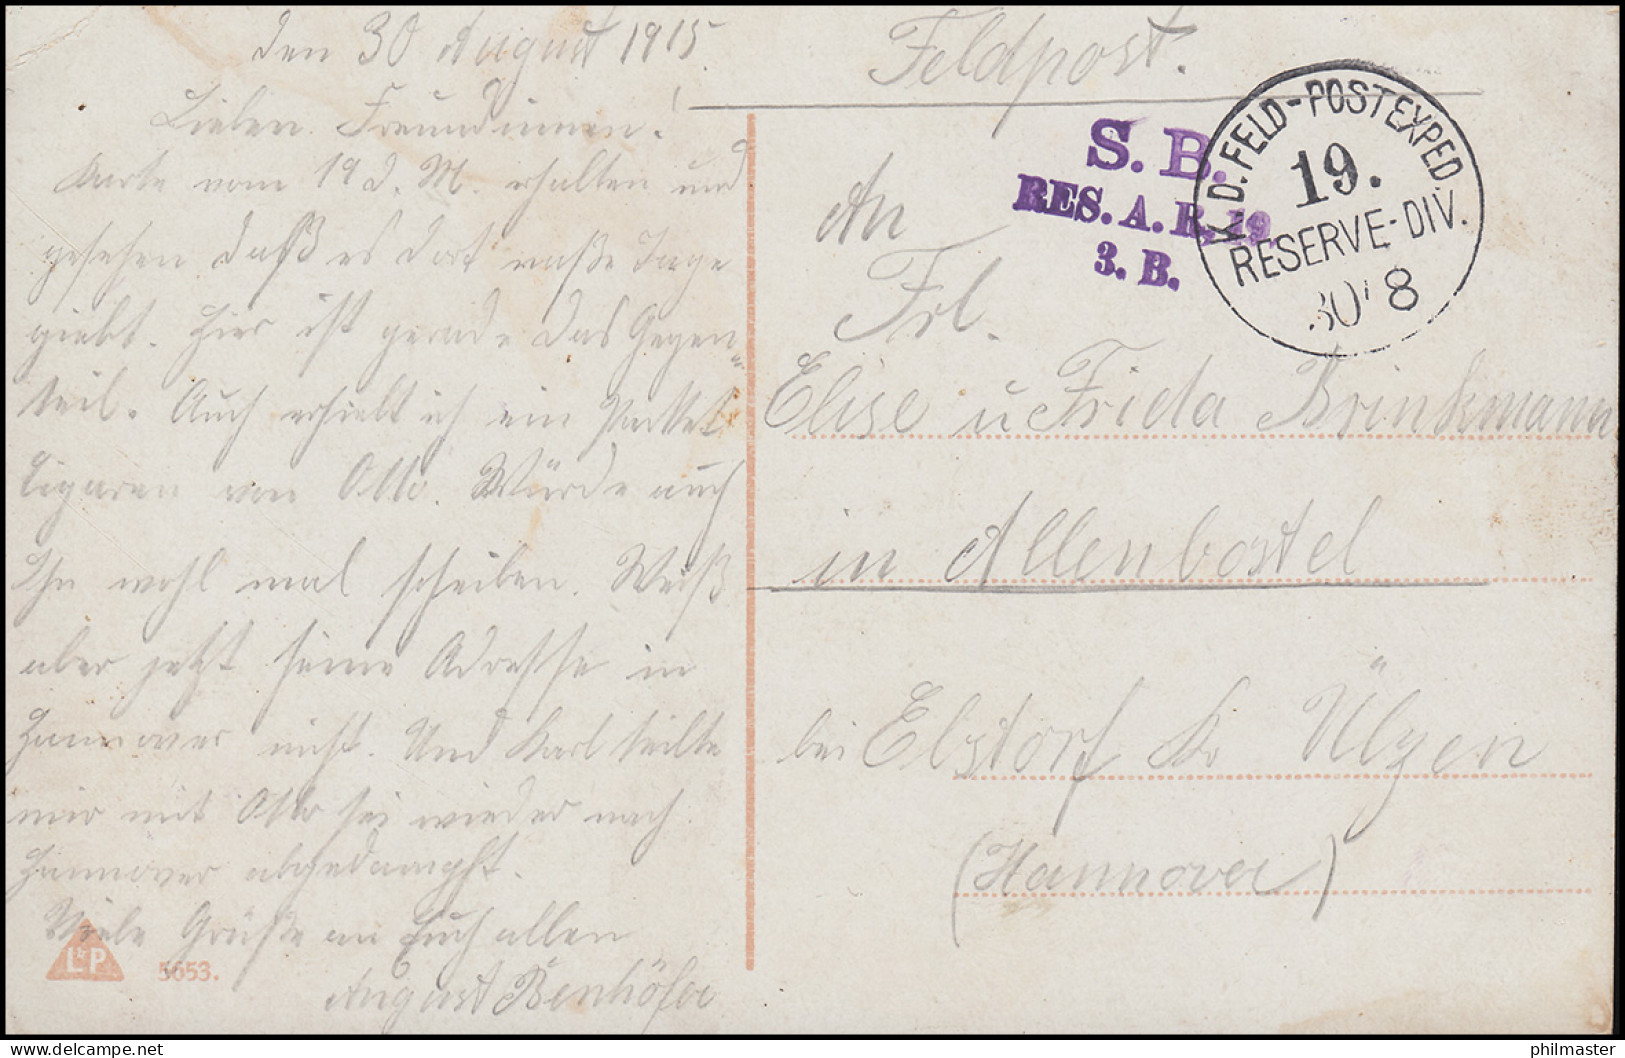 den 30 August 1915.
Lieben Freundinnen!
Karte vom 19 d. M. erhalten und
gesehen daß es dort naße Tage
giebt. Hier ist gerade das Gegen
teil. Auch erhielt ich ein Packet
Cigaren von Otto. Würde auch
Ihn wohl mal scheiben. Weiß
aber jetzt seine Adresse in
Hannover nicht. Und Karl teilte
mir mit Otto sei wieder nach
Hannover abgedampft.
Viele Grüße an Euch allen
August Benhöfer
L&P 5653.
Feldpost.
S. B.
RES. A. R. 19
3. B.
K.D. FELD-POSTEXPED.
19.
RESERVE-DIV.
30 8
An
Frl.
Elise u Frida Brinkmann
in Allenbostel
bei Ebstorf Kr Ülzen
(Hannover)
philmaster
www.delcampe.net